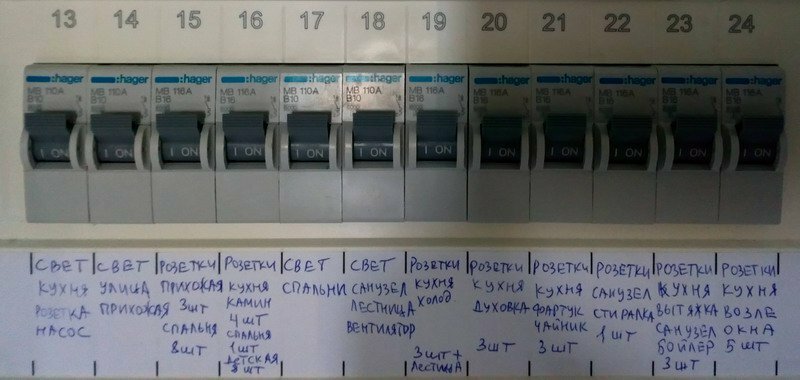 13 14 15 16 17 18 19 20 21 22 23 24
:hager
MB 110A
B10
6000
I ON
:hager
MB 110A
B10
6000
I ON
:hager
MB 116A
B16
6000
I ON
:hager
MB 116A
B16
6000
I ON
:hager
MB 110A
B10
6000
I ON
:hager
MB 110A
B10
6000
I ON
:hager
MB 116A
B16
6000
I ON
:hager
MB 116A
B16
I ON
:hager
MB 116A
B16
I ON
:hager
MB 116A
B16
I ON
:hager
MB 116A
B16
I ON
:hager
MB 116A
B16
I ON
СВЕТ
КУХНЯ
РОЗЕТКА
НАСОС
СВЕТ
УЛИЦА
ПРИХОЖАЯ
РОЗЕТКИ
ПРИХОЖАЯ
3шт
СПАЛЬНЯ
8шт
РОЗЕТКИ
КУХНЯ
КАМИН
4шт
СПАЛЬНЯ
1шт
ДЕТСКАЯ
8шт
СВЕТ
СПАЛЬНИ
СВЕТ
САНУЗЕЛ
ЛЕСТНИЦА
ВЕНТИЛЯТОР
РОЗЕТКИ
КУХНЯ
ХОЛОД
3шт+
ЛЕСТИЦА
РОЗЕТКИ
КУХНЯ
ДУХОВКА
3шт
РОЗЕТКИ
КУХНЯ
ФАРТУК
ЧАЙНИК
3шт
РОЗЕТКИ
САНУЗЕЛ
СТИРАЛКА
1шт
РОЗЕТКИ
КУХНЯ
ВЫТЯЖКА
САНУЗЕЛ
БОЙЛЕР
3шт
РОЗЕТКИ
КУХНЯ
ВОЗЛЕ
ОКНА
5шт